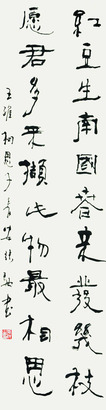 紅豆生南國春来發幾枝
願君多采擷此物最相思
王維相思子